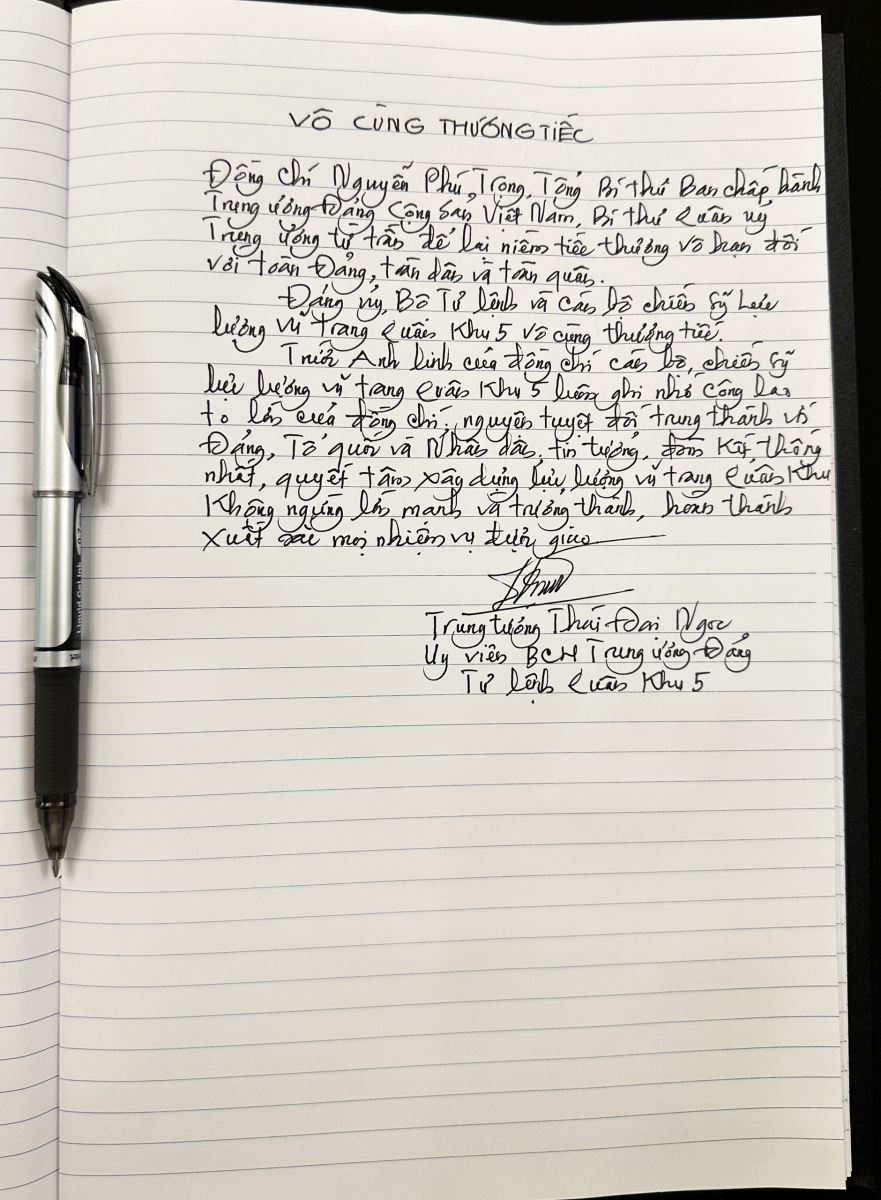 VÔ CÙNG THƯƠNG TIẾC
Đồng chí Nguyễn Phú Trọng, Tổng Bí thư Ban chấp hành
Trung ương Đảng Cộng sản Việt Nam, Bí thư Quân ủy
Trung ương từ trần để lại niềm tiếc thương vô hạn đối
với toàn Đảng, toàn dân và toàn quân.
Đảng ủy, Bộ Tư lệnh và cán bộ chiến sỹ Lực
lượng vũ trang Quân Khu 5 vô cùng thương tiếc.
Trước Anh linh của đồng chí cán bộ, chiến sỹ
lực lượng vũ trang Quân Khu 5 luôn ghi nhớ công lao
to lớn của đồng chí; nguyện tuyệt đối trung thành với
Đảng, Tổ quốc và Nhân dân, tin tưởng, đoàn kết, thống
nhất, quyết tâm xây dựng lực lượng vũ trang Quân Khu
Không ngừng lớn mạnh và trưởng thành, hoàn thành
xuất sắc mọi nhiệm vụ được giao
Trung tướng Thái Đại Ngọc
Ủy viên BCH Trung ương Đảng
Tư lệnh Quân Khu 5
Liquid Gel Ink 0.7